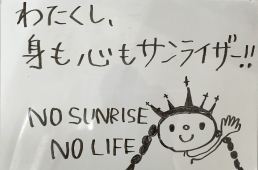 わたくし、
身も心もサンライザー!!
NO SUNRISE
NO LIFE